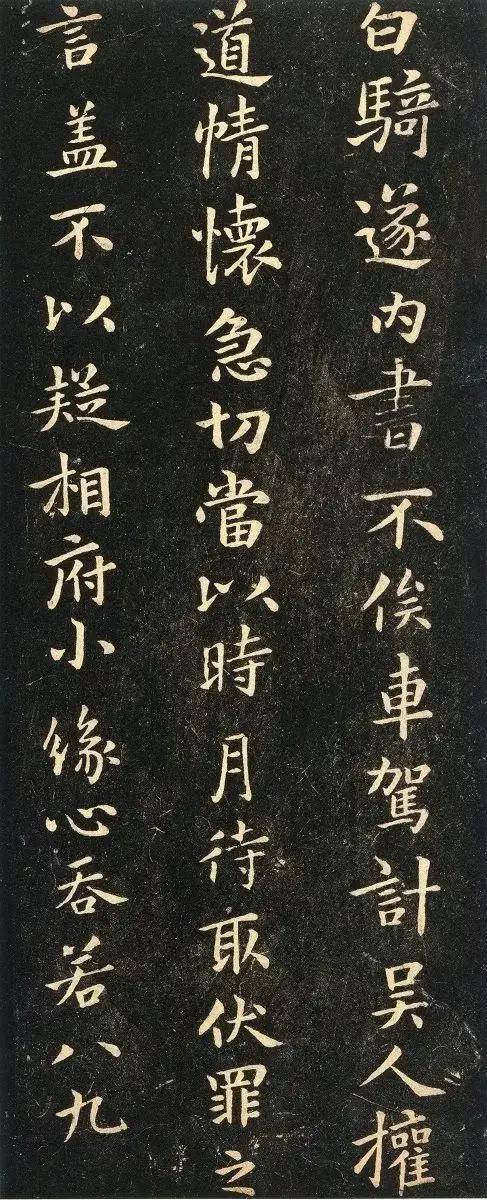 白騎遂內書不俟車駕計吳人權
道情懷急切當以時月待取伏罪之
言盖不以疑相府小緣心吞若八九